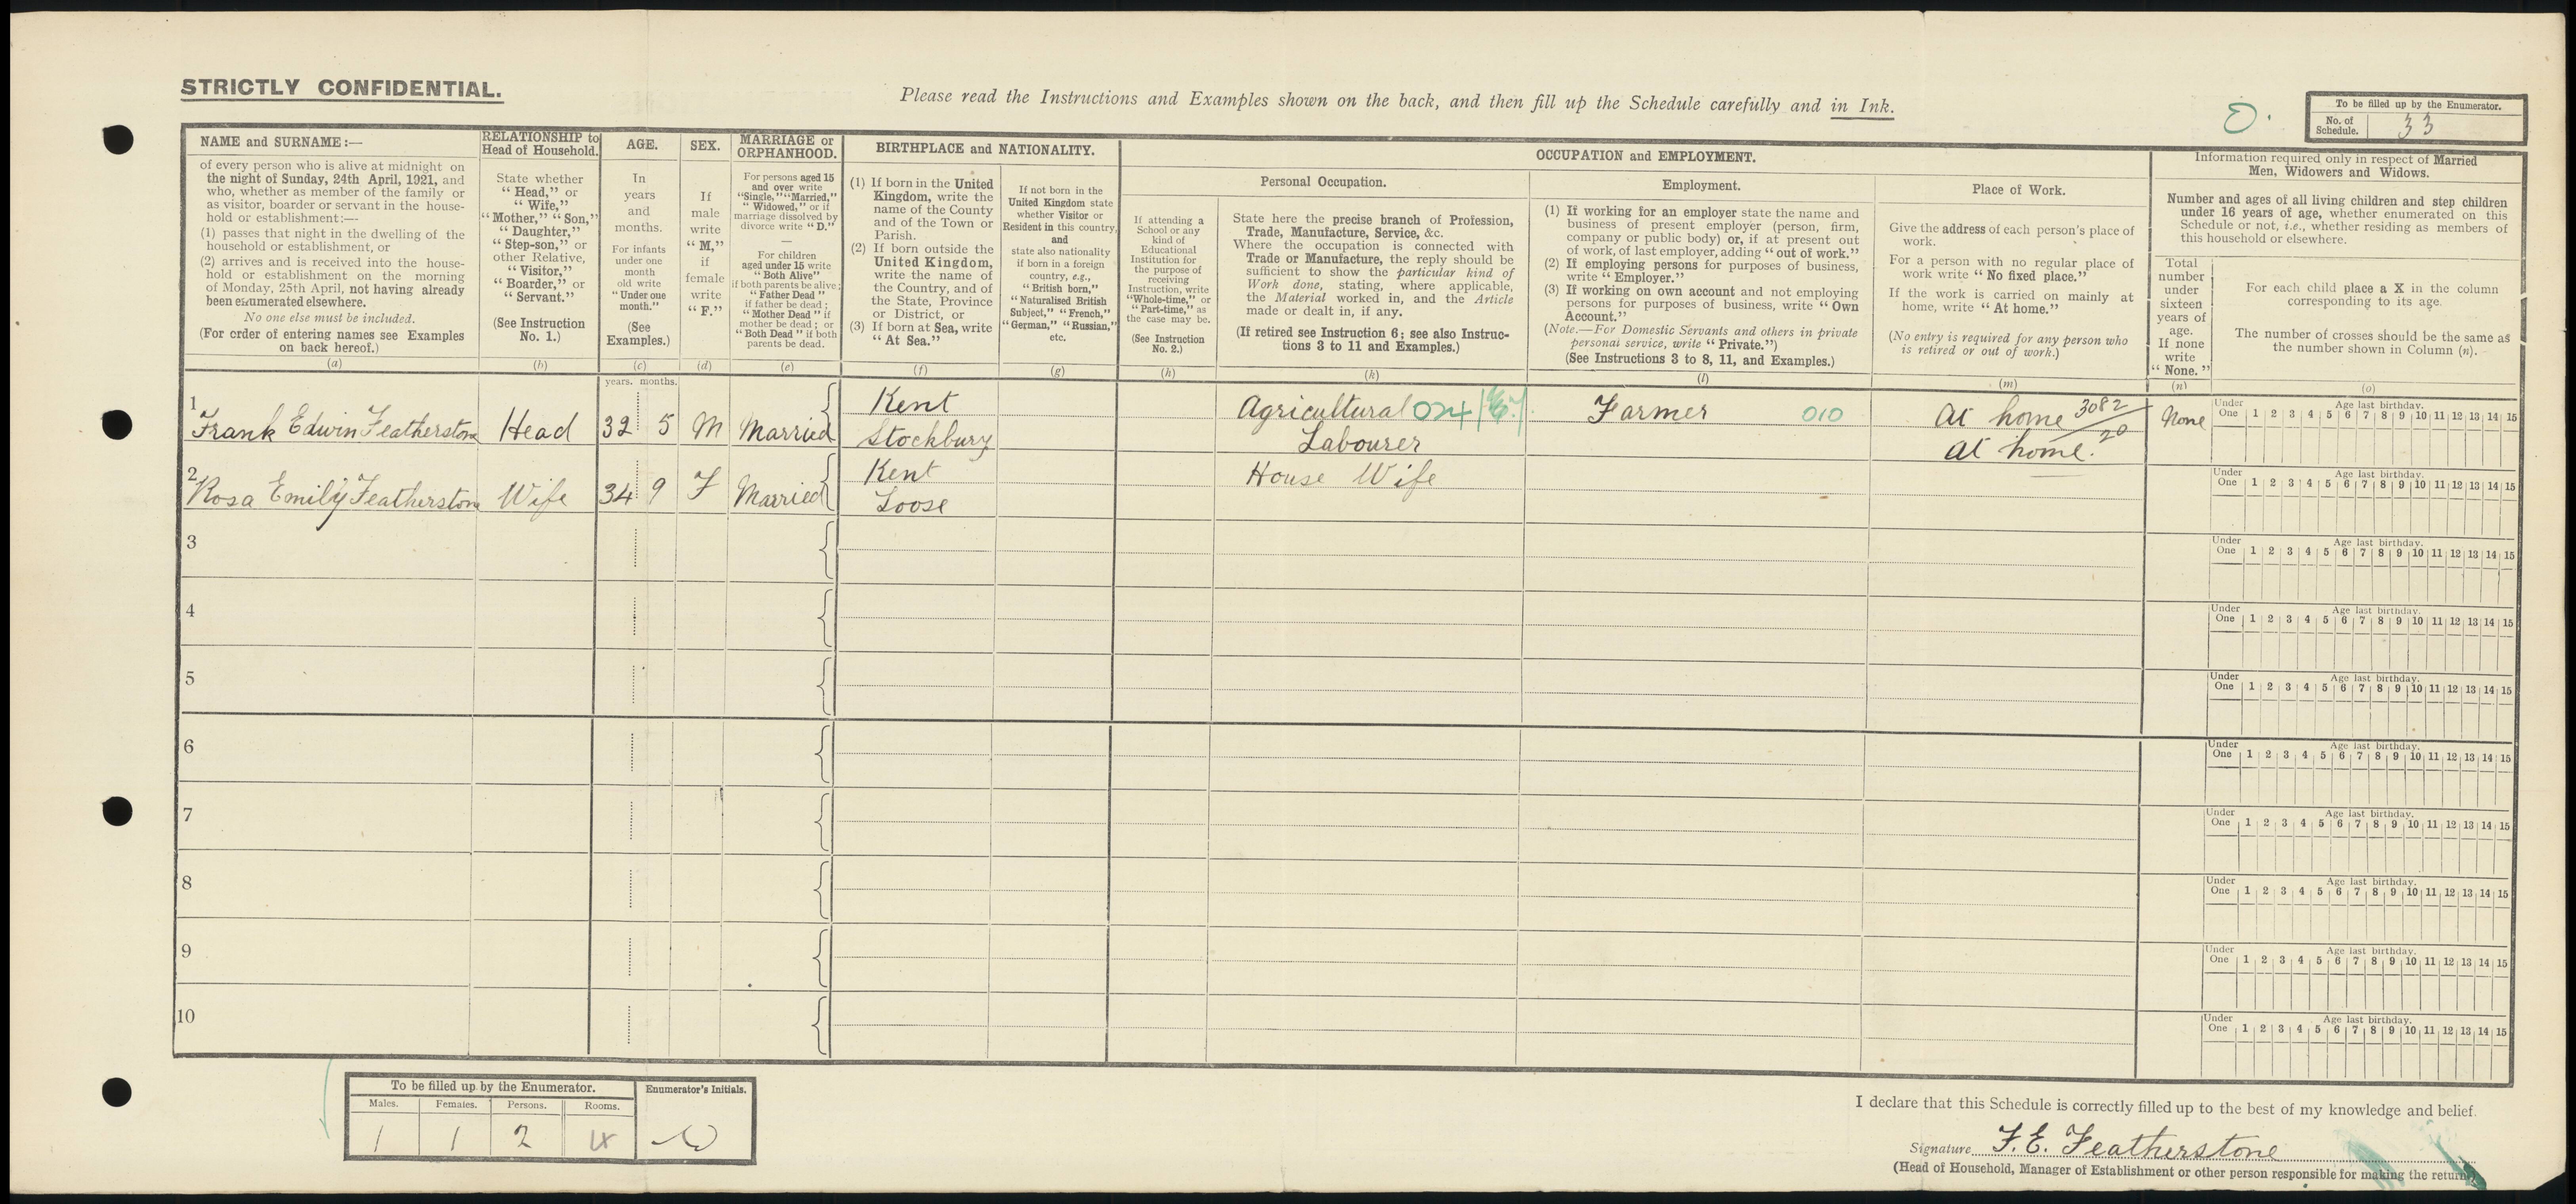 STRICTLY CONFIDENTIAL.
Please read the Instructions and Examples shown on the back, and then fill up the Schedule carefully and in Ink.
To be filled up by the Enumerator.
No. of Schedule. 33
NAME and SURNAME :—
of every person who is alive at midnight on
the night of Sunday, 24th April, 1921, and
who, whether as member of the family or
as visitor, boarder or servant in the house-
hold or establishment:—
(1) passes that night in the dwelling of the
household or establishment, or
(2) arrives and is received into the house-
hold or establishment on the morning
of Monday, 25th April, not having already
been enumerated elsewhere.
No one else must be included.
(For order of entering names see Examples
on back hereof.)
(a)
RELATIONSHIP to
Head of Household.
State whether
"Head," or
"Wife,"
"Mother," "Son,"
"Daughter,"
"Step-son," or
other Relative,
"Visitor,"
"Boarder," or
"Servant."
(See Instruction
No. 1.)
(b)
AGE.
In
years
and
months.
For infants
under one
month
old write
"Under one
month."
(See
Examples.)
(c)
years. months.
SEX.
If
male
write
"M,"
if
female
write
"F."
(d)
MARRIAGE or
ORPHANHOOD.
For persons aged 15
and over write
"Single," "Married,"
"Widowed," or if
marriage dissolved by
divorce write "D."
—
For children
aged under 15 write
"Both Alive"
if both parents be alive;
"Father Dead"
if father be dead;
"Mother Dead" if
mother be dead; or
"Both Dead" if both
parents be dead.
(e)
BIRTHPLACE and NATIONALITY.
(1) If born in the United
Kingdom, write the
name of the County
and of the Town or
Parish.
(2) If born outside the
United Kingdom,
write the name of
the Country, and of
the State, Province
or District, or
(3) If born at Sea, write
"At Sea."
(f)
If not born in the
United Kingdom state
whether Visitor or
Resident in this country,
and
state also nationality
if born in a foreign
country, e.g.,
"British born,"
"Naturalised British
Subject," "French,"
"German," "Russian,"
etc.
(g)
OCCUPATION and EMPLOYMENT.
Personal Occupation.
If attending a
School or any
kind of
Educational
Institution for
the purpose of
receiving
Instruction, write
"Whole-time," or
"Part-time," as
the case may be.
(See Instruction
No. 2.)
(h)
State here the precise branch of Profession,
Trade, Manufacture, Service, &c.
Where the occupation is connected with
Trade or Manufacture, the reply should be
sufficient to show the particular kind of
Work done, stating, where applicable,
the Material worked in, and the Article
made or dealt in, if any.
(If retired see Instruction 6; see also Instruc-
tions 3 to 11 and Examples.)
(k)
Employment.
(1) If working for an employer state the name and
business of present employer (person, firm,
company or public body) or, if at present out
of work, of last employer, adding "out of work."
(2) If employing persons for purposes of business,
write "Employer."
(3) If working on own account and not employing
persons for purposes of business, write "Own
Account."
(Note.—For Domestic Servants and others in private
personal service, write "Private.")
(See Instructions 3 to 8, 11, and Examples.)
(l)
Place of Work.
Give the address of each person's place of
work.
For a person with no regular place of
work write "No fixed place."
If the work is carried on mainly at
home, write "At home."
(No entry is required for any person who
is retired or out of work.)
(m)
Information required only in respect of Married
Men, Widowers and Widows.
Number and ages of all living children and step children
under 16 years of age, whether enumerated on this
Schedule or not, i.e., whether residing as members of
this household or elsewhere.
Total
number
under
sixteen
years of
age.
If none
write
"None."
(n)
For each child place a X in the column
corresponding to its age.
The number of crosses should be the same as
the number shown in Column (n).
(o)
1 Frank Edwin Featherstone Head 32 5 M Married Kent Stockbury Agricultural 024 Labourer Farmer 010 at home 3082/20 at home. None
Under One 1 2 3 4 5 6 7 8 9 10 11 12 13 14 15 Age last birthday.
2 Rosa Emily Featherstone Wife 34 9 F Married Kent Loose House Wife
Under One 1 2 3 4 5 6 7 8 9 10 11 12 13 14 15 Age last birthday.
3
Under One 1 2 3 4 5 6 7 8 9 10 11 12 13 14 15 Age last birthday.
4
Under One 1 2 3 4 5 6 7 8 9 10 11 12 13 14 15 Age last birthday.
5
Under One 1 2 3 4 5 6 7 8 9 10 11 12 13 14 15 Age last birthday.
6
Under One 1 2 3 4 5 6 7 8 9 10 11 12 13 14 15 Age last birthday.
7
Under One 1 2 3 4 5 6 7 8 9 10 11 12 13 14 15 Age last birthday.
8
Under One 1 2 3 4 5 6 7 8 9 10 11 12 13 14 15 Age last birthday.
9
Under One 1 2 3 4 5 6 7 8 9 10 11 12 13 14 15 Age last birthday.
10
Under One 1 2 3 4 5 6 7 8 9 10 11 12 13 14 15 Age last birthday.
To be filled up by the Enumerator.
Enumerator's Initials.
Males. Females. Persons. Rooms.
1 1 2 4
I declare that this Schedule is correctly filled up to the best of my knowledge and belief.
Signature F. E. Featherstone
(Head of Household, Manager of Establishment or other person responsible for making the return)